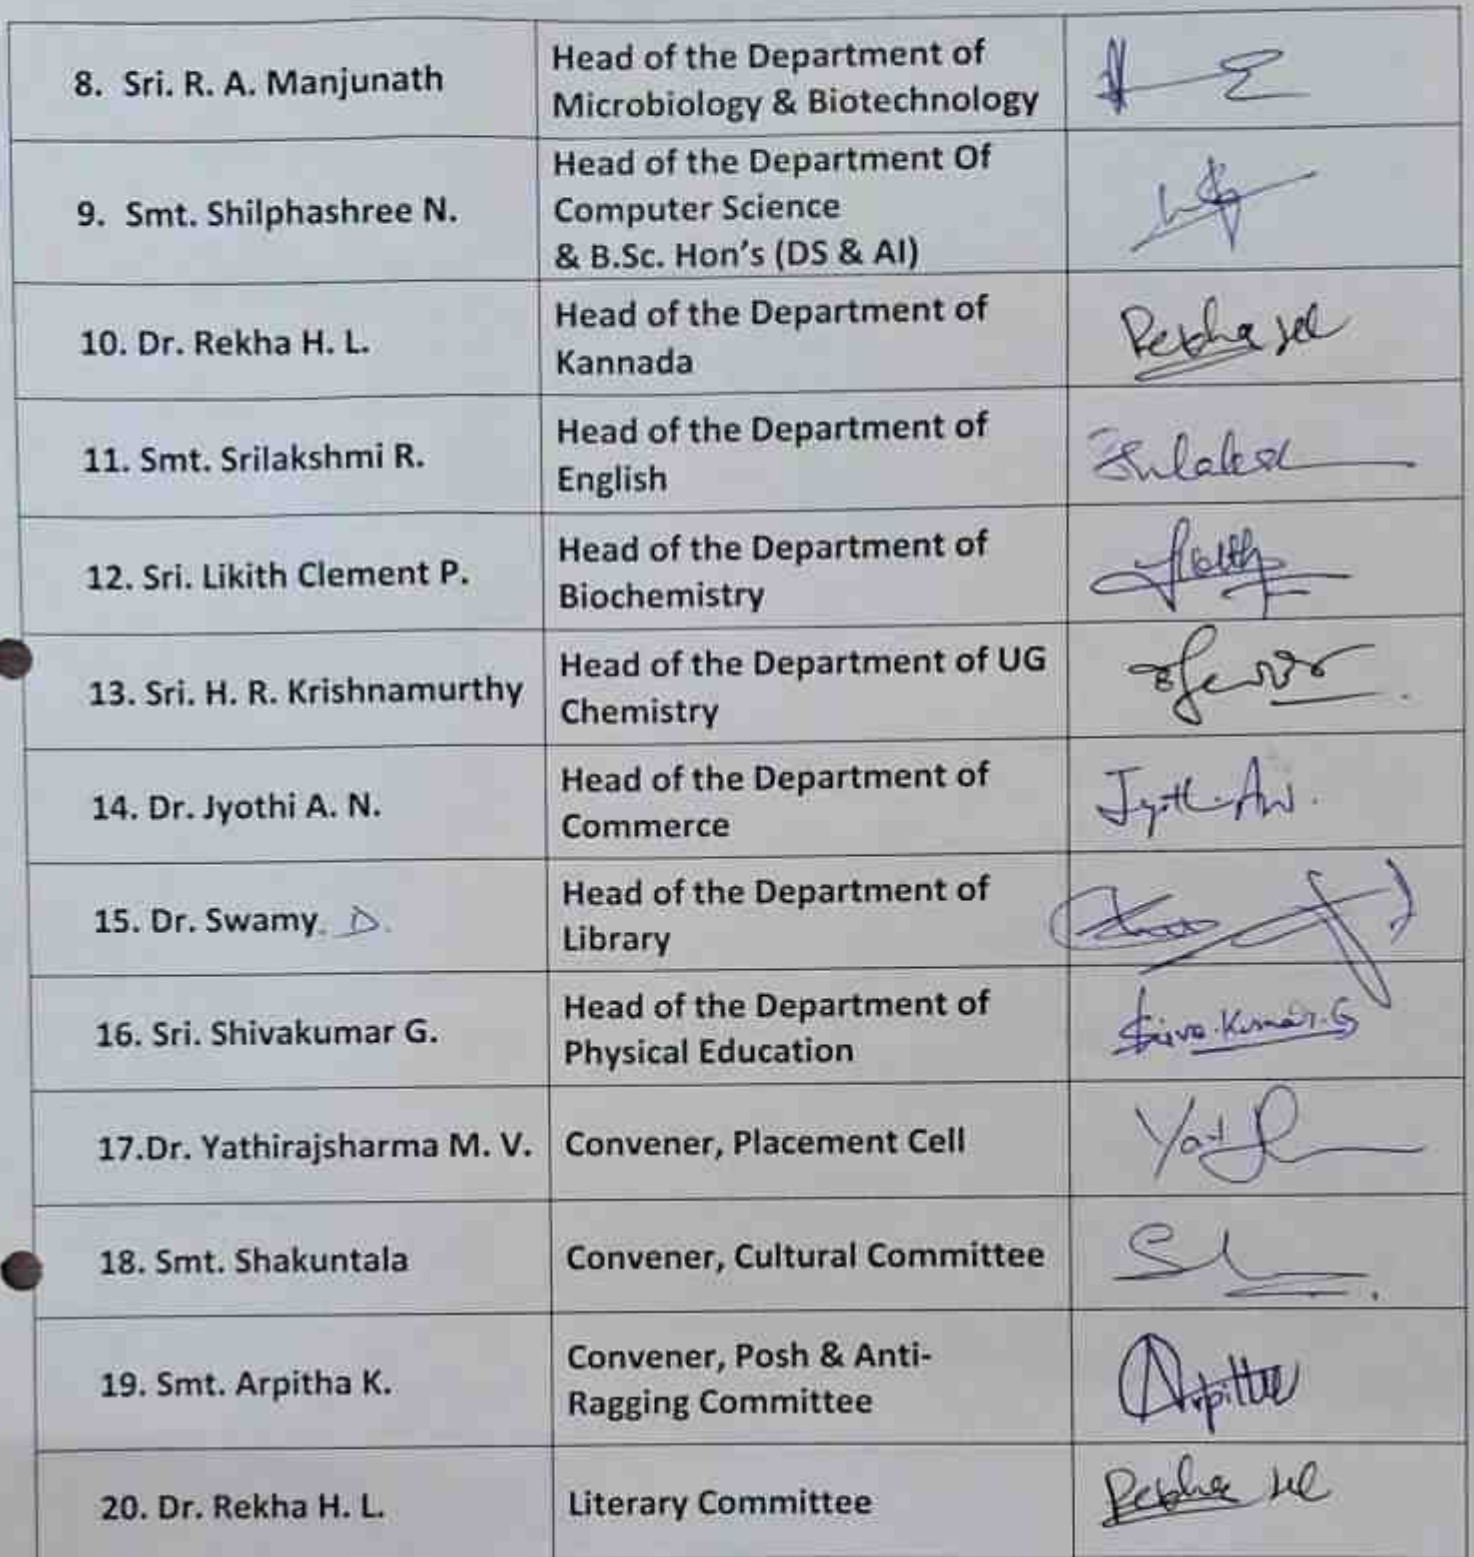 8. Sri. R. A. Manjunath
Head of the Department of
Microbiology & Biotechnology
9. Smt. Shilphashree N.
Head of the Department Of
Computer Science
& B.Sc. Hon's (DS & AI)
10. Dr. Rekha H. L.
Head of the Department of
Kannada
Rekha
11. Smt. Srilakshmi R.
Head of the Department of
English
12. Sri. Likith Clement P.
Head of the Department of
Biochemistry
13. Sri. H. R. Krishnamurthy
Head of the Department of UG
Chemistry
14. Dr. Jyothi A. N.
Head of the Department of
Commerce
15. Dr. Swamy. D.
Head of the Department of
Library
16. Sri. Shivakumar G.
Head of the Department of
Physical Education
17.Dr. Yathirajsharma M. V.
Convener, Placement Cell
18. Smt. Shakuntala
Convener, Cultural Committee
19. Smt. Arpitha K.
Convener, Posh & Anti-
Ragging Committee
20. Dr. Rekha H. L.
Literary Committee
Rekha